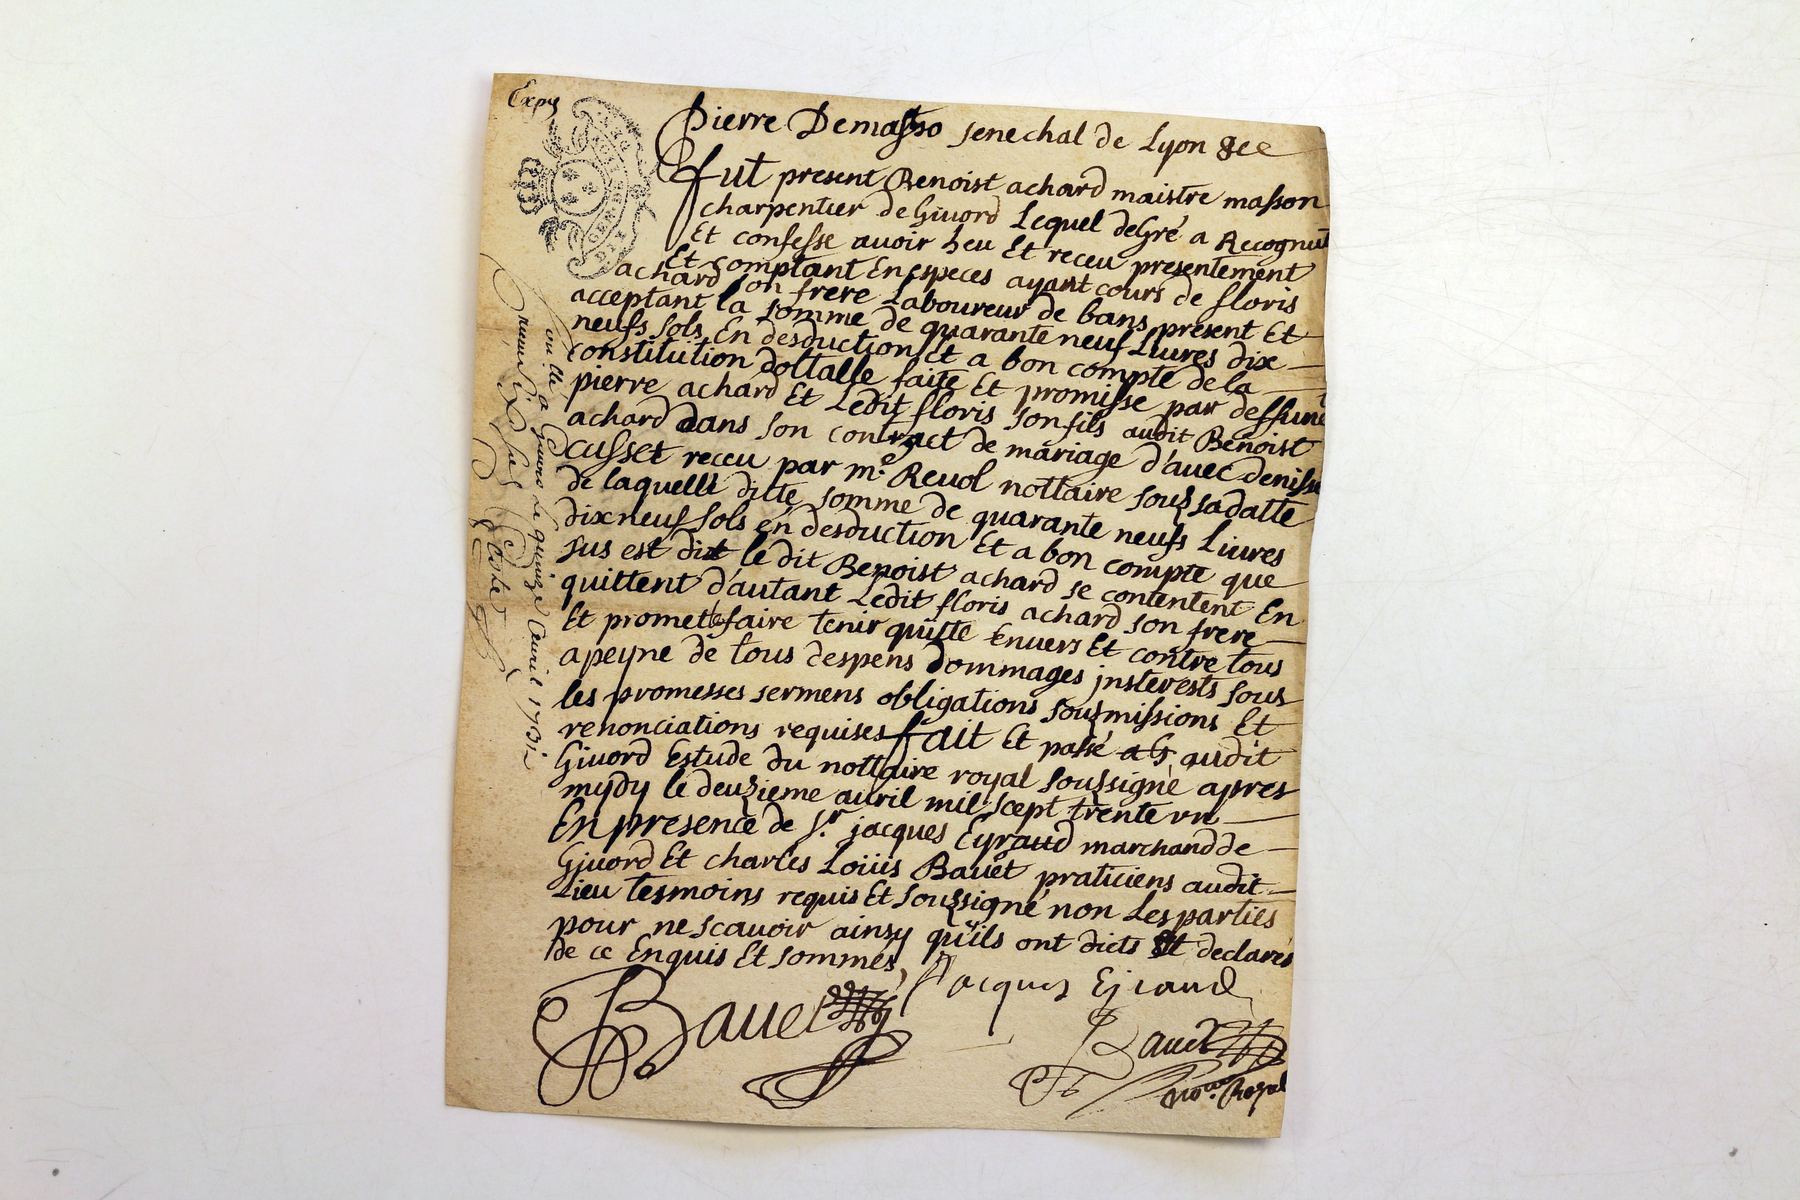 Expé
Pierre Demasso senechal de Lyon &ce
fut present Benoist achard maistre masson
charpentier de Givord Lequel de Gré a Recognut
Et confesse avoir heu Et receu presentement
Et comptant En especes ayant cours de floris
achard son frere Laboureur de bans present Et
acceptant la somme de quarante neuf Livres dix
neufs sols En desduction Et a bon compte de la
constitution dottalle faite Et promisse par deffunt
pierre achard Et Ledit floris son fils audit Benoist
achard dans son contract de mariage d'avec denisse
cusset receu par me. Revol nottaire sous sa datte
de laquelle ditte somme de quarante neufs Livres
dix neuf sols en desduction Et a bon compte que
sus est dit le dit Benoist achard se contentent En
quittent d'autant Ledit floris achard son frere
Et promet faire tenir quitte Envers Et contre tous
a peyne de tous despens dommages jnsterests sous
les promesses sermens obligations sousmissions Et
renonciations requises fait Et passé a G audit
Givord Estude du nottaire royal soussigné apres
mydy le deuzieme avril mil scept trente un
En presence de Sr. jacques Eyraud marchand de
Givord Et charles Loüis Bavet praticiens audit
Lieu tesmoins requis Et soussigné non Les parties
pour ne scavoir ainsy qu'ils ont dicts Et declarés
de ce Enquis Et sommés
Jacques Ejraud
Bavet
Bavet
no.re Royal
Con.lle a Givors le quinze avril 1731